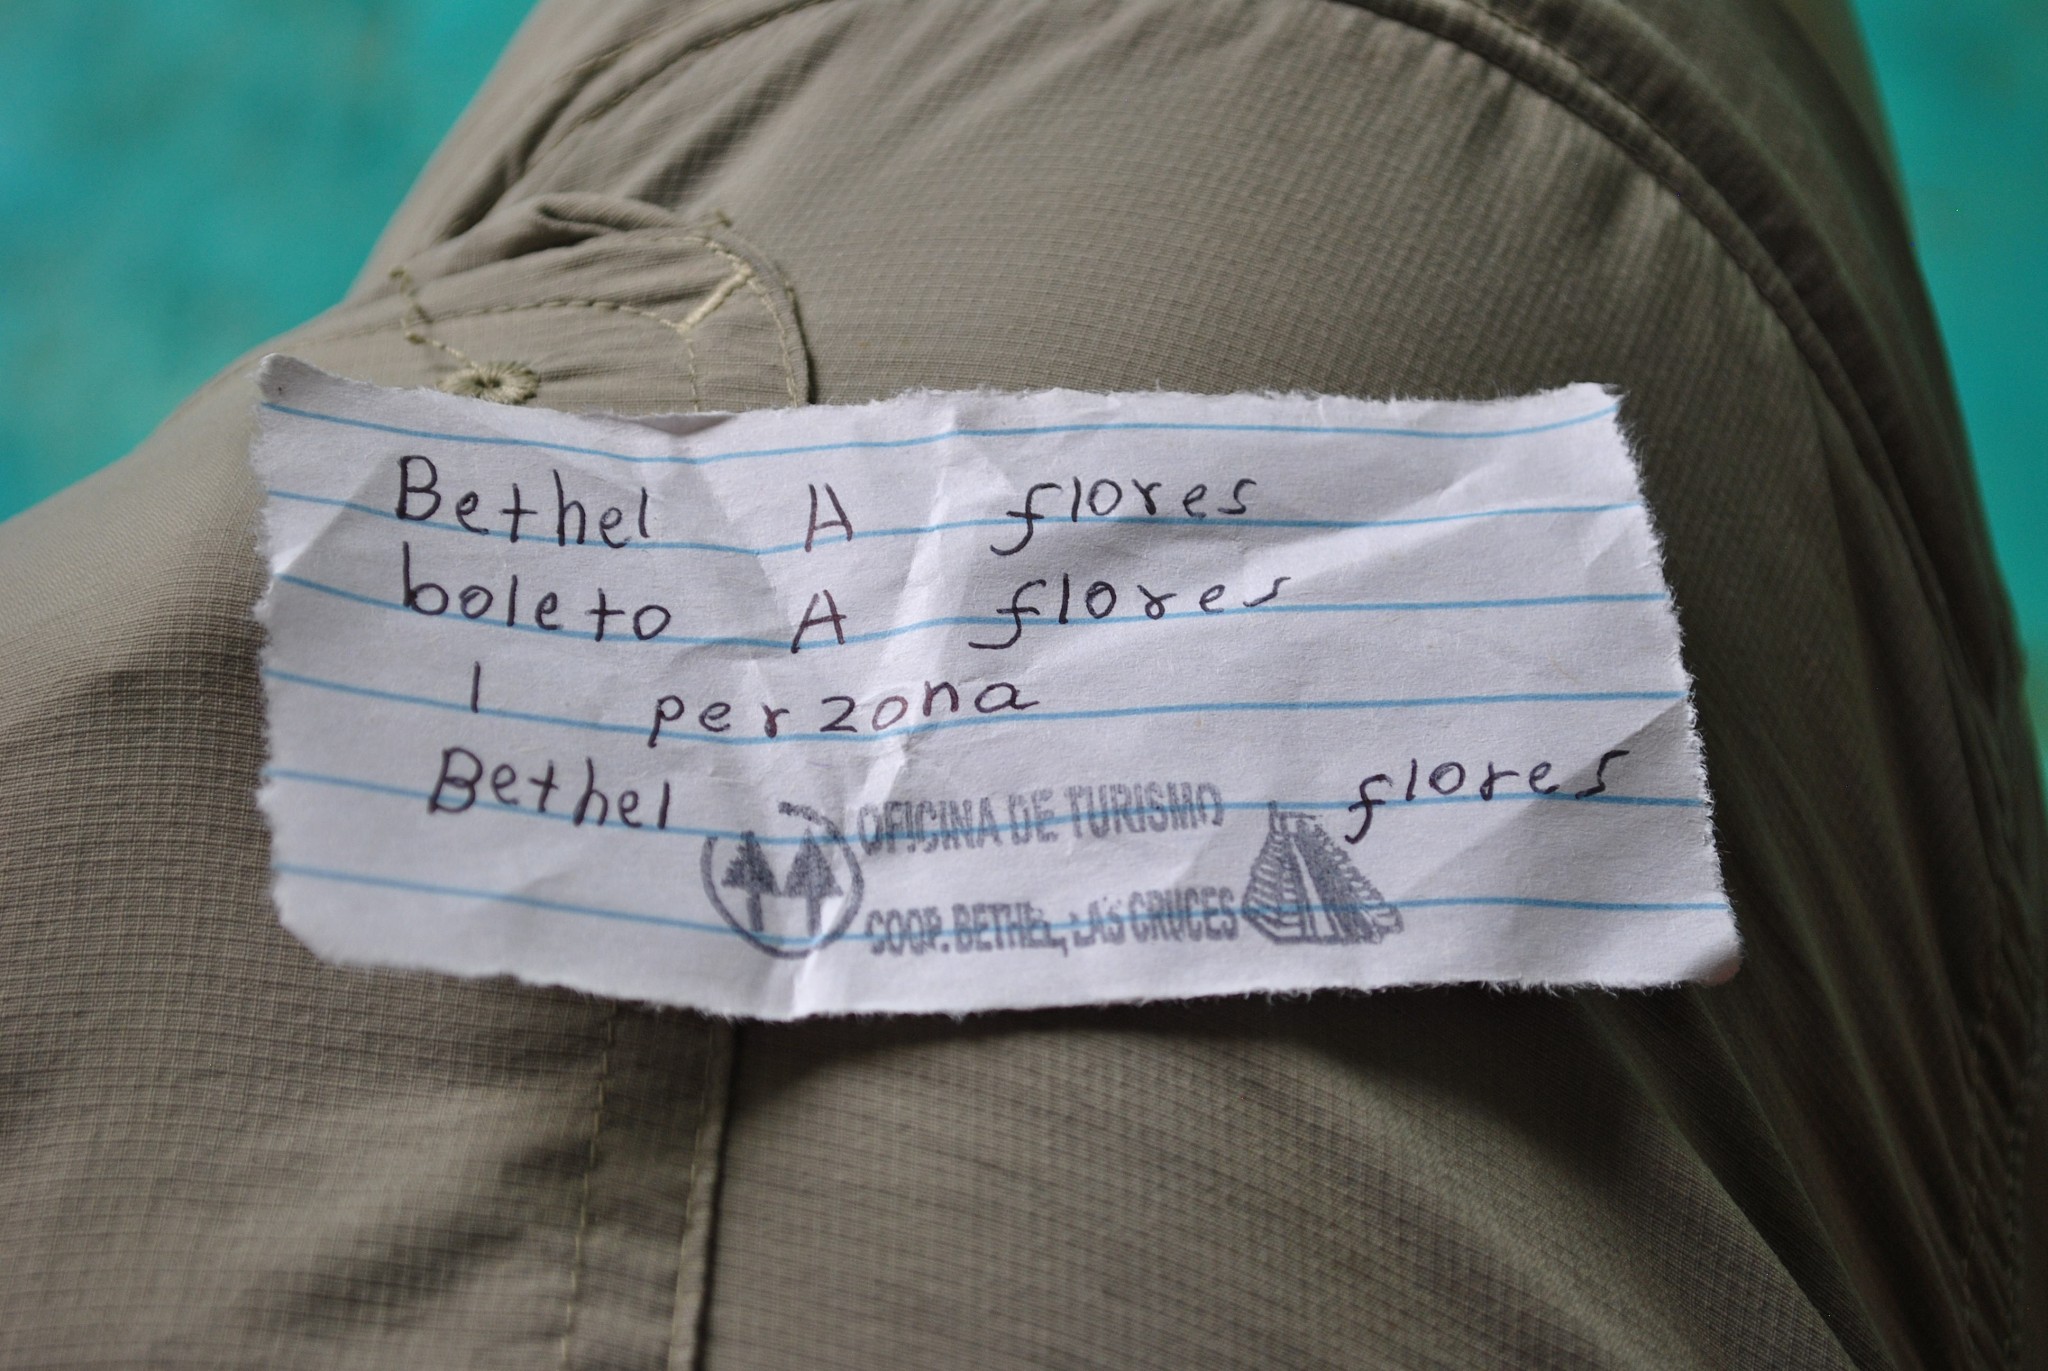 Bethel A flores
boleto A flores
1 perzona
Bethel flores
OFICINA DE TURISMO
COOP. BETHEL, LAS CRUCES